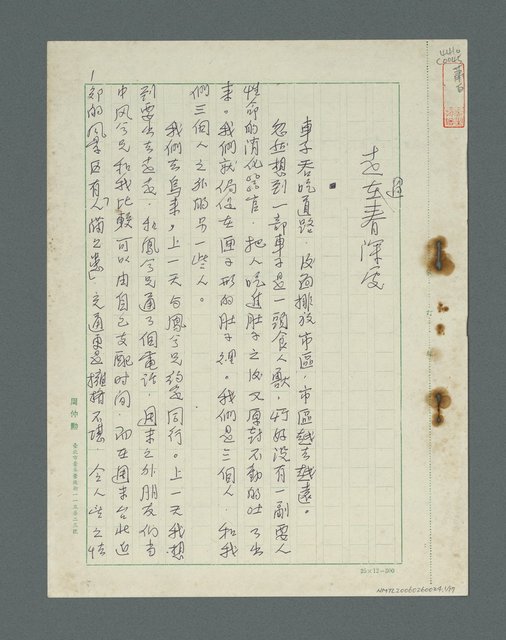 走過春深處
車子吞吃道路,後面排放市區,市區越去越遠。
忽然想到一部車子是一頭食人獸,所好沒有一副要人
性命的消化器官,把人吃進肚子之後又原封不動的吐了出
來。我們就侷促在匣子形的肚子裡。我們是三個人,和我
們三個人之外的另一些人。
我們去烏來,上一天與鳳兮兄約定同行。上一天我想
到要出去走走,和鳳兮兄通了個電話,週末之外朋友們當
中風兮兄和我比較可以由自己支配時間,而在週末台北近
郊的風景區有人「滿之患」,交通更是擁擠不堪,令人望之怯
1
周仲勳
25×12=300
NMTL20060260024.1/99